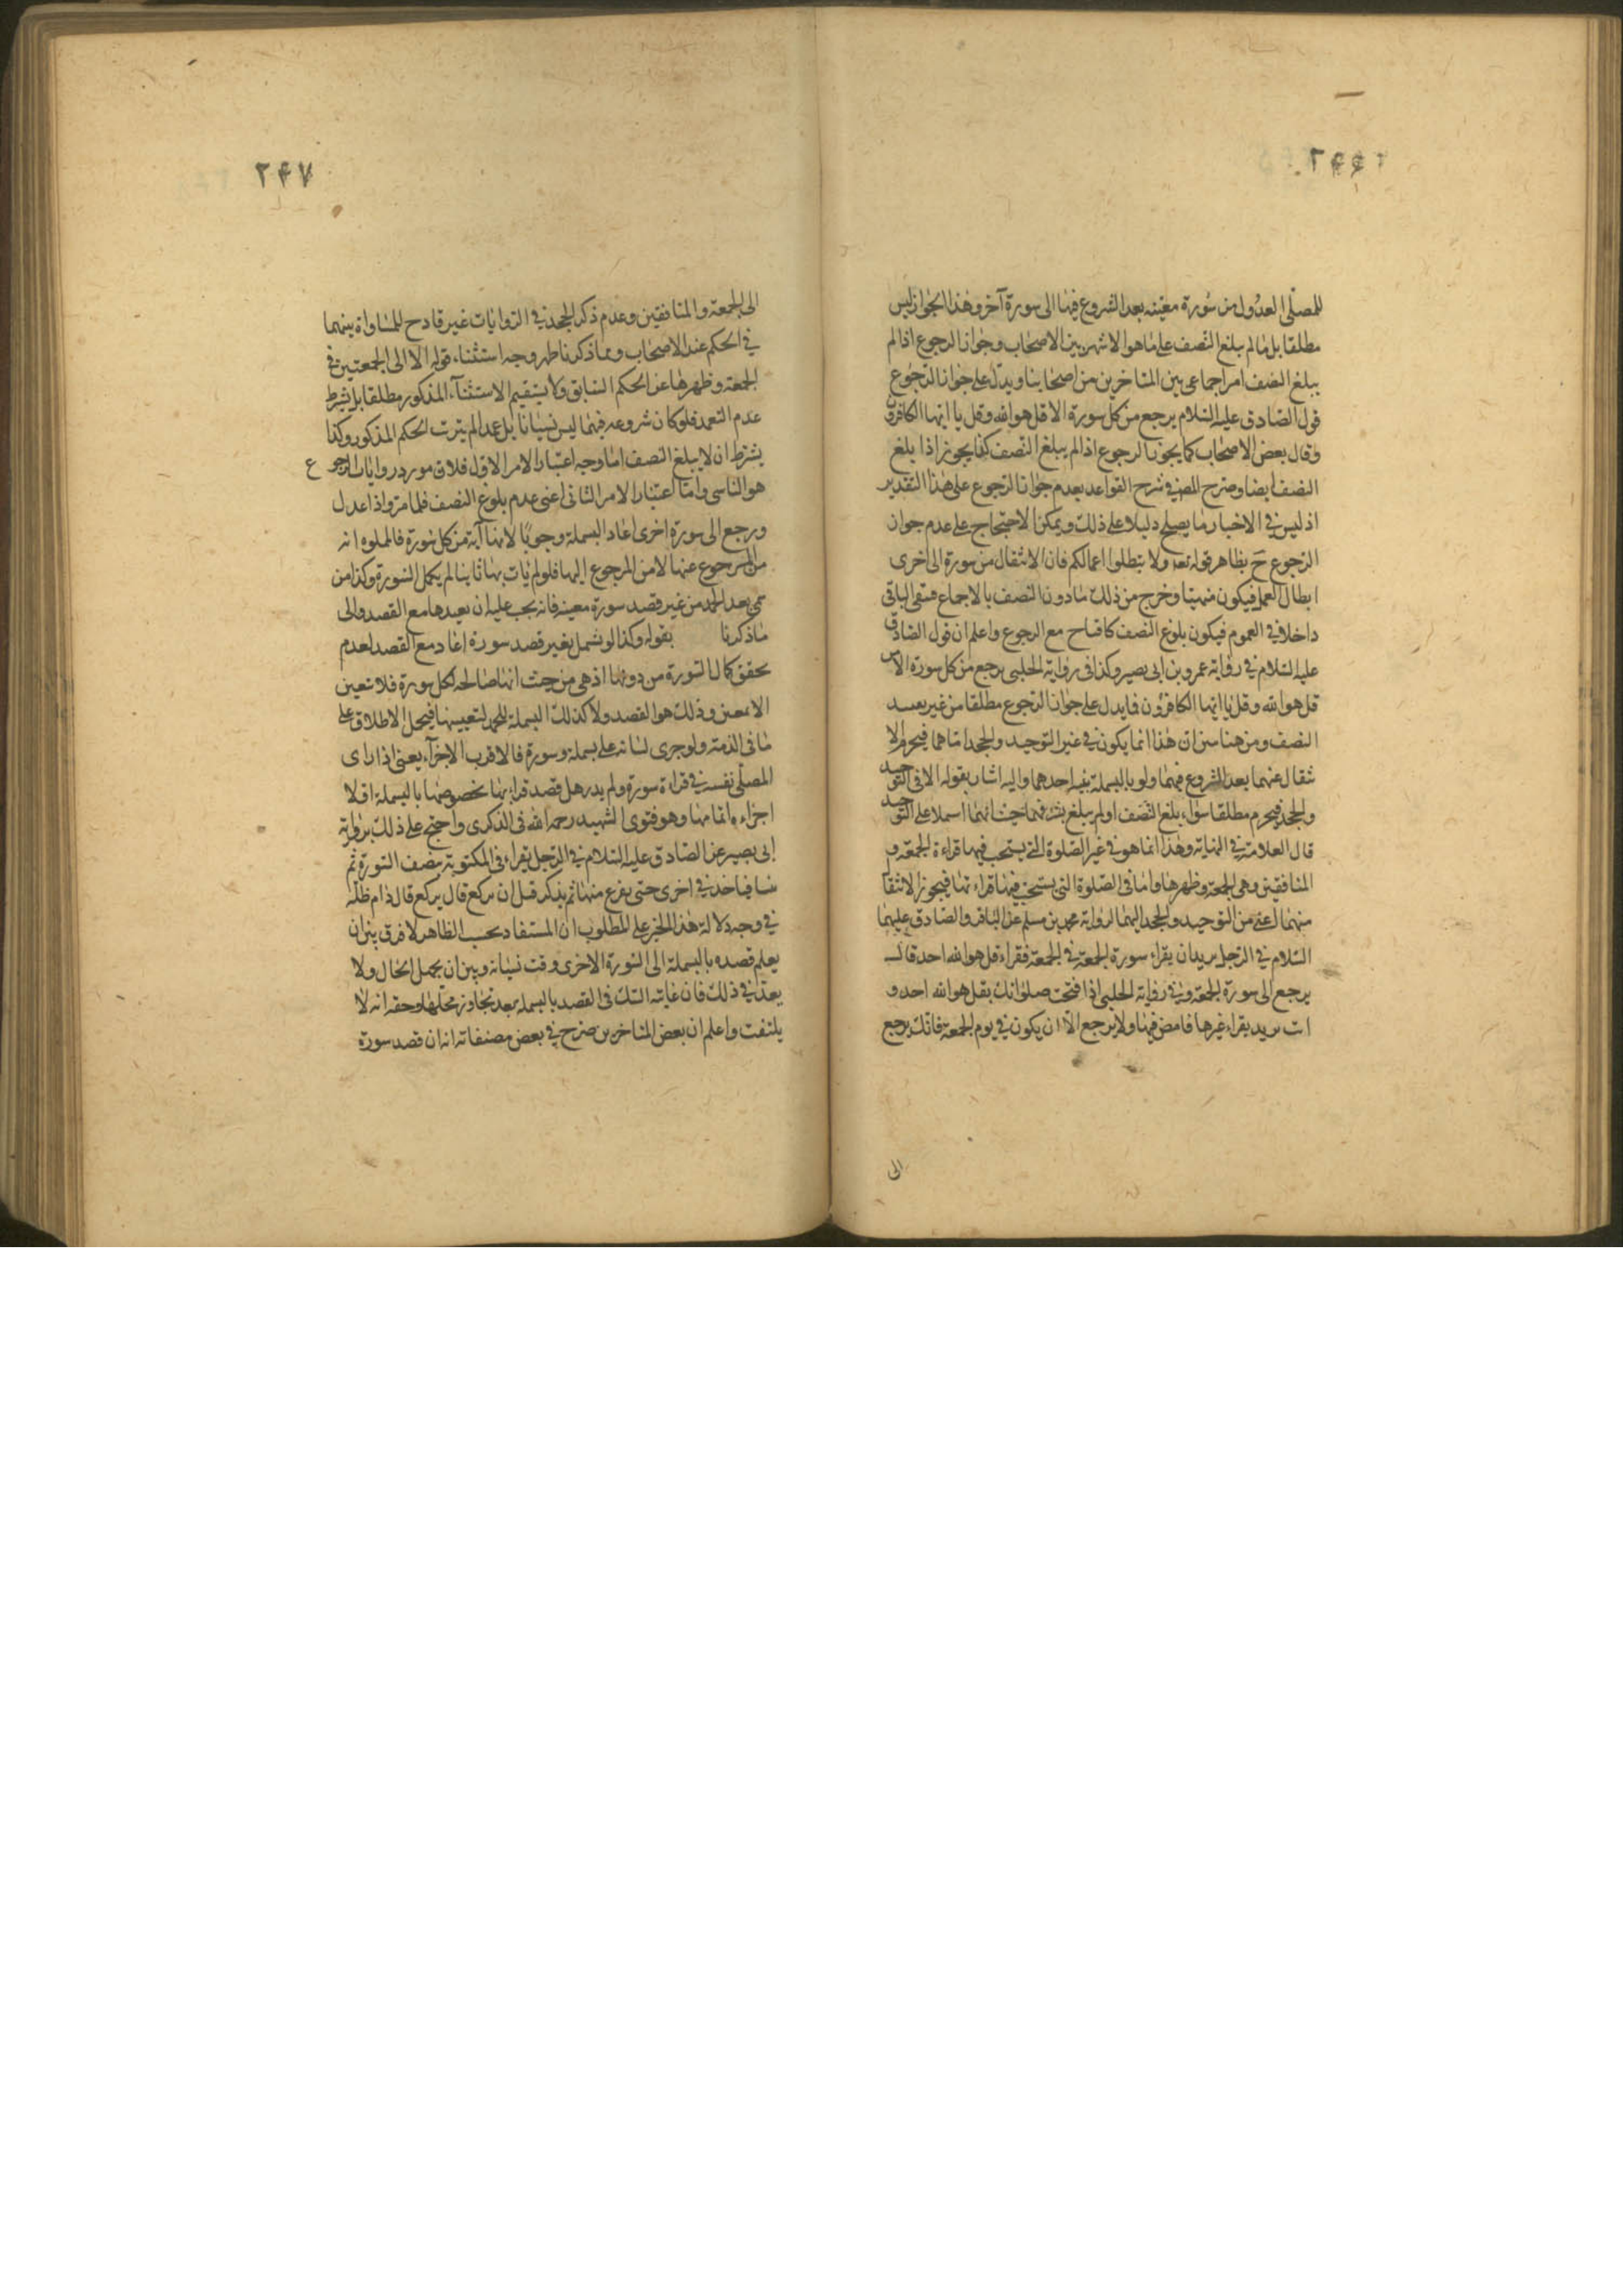 ۲۴۶
للمصلی العدول من سورة معینه بعد الشروع فیها الی سورة آخر وهذا الجواز لیس
مطلقا بل ما لم یبلغ النصف علی ما هو الاشهر بین الاصحاب وجواز الرجوع اذا لم
یبلغ النصف امر اجماعی بین المتاخرین من اصحابنا ویدل علی جواز الرجوع
قول الصادق علیه السلام یرجع من کل سورة الا قل هو الله وقل یا ایها الکافرون
وقال بعض الاصحاب کما یجوز الرجوع اذا لم یبلغ النصف کذا یجوز اذا بلغ
النصف ایضا وصرح المص فی شرح القواعد بعدم جواز الرجوع علی هذا التقدیر
اذ لیس فی الاخبار ما یصلح دلیلا علی ذلک ویمکن الاحتجاج علی عدم جواز
الرجوع ح بظاهر قوله تعه ولا تبطلوا اعمالکم فان الانتقال من سورة الی اخری
ابطال العمل فیکون منهیا وخرج من ذلک ما دون النصف بالاجماع فبقی الباقی
داخلا فی العموم فیکون بلوغ النصف مع الرجوع واعلم ان قول الصادق
علیه السلام فی روایة عمرو بن ابی بصیر وکذا فی روایة الحلبی یرجع من کل سورة الا من
قل هو الله وقل یا ایها الکافرون فا یدل علی جواز الرجوع مطلقا من غیر
النصف ومن هنا ان هذا انما یکون فی غیر التوحید والجحد اما هما فیحرم الا
نتقال عنهما بعد الشروع فیهما ولو بالبسملة بنیه احدهما والیه اشار بقوله الا فی التوحید
والجحد فیحرم مطلقا سواء بلغ النصف او لم یبلغ
قال العلامة فی النهایة وهذا انما هو فی غیر الصلوة التی یستحب فیها قراءة الجمعه و
المنافقین وهی الجمعة وظهرها واما فی الصلوة التی یستحب فیها قراءتها فیجوز الانتقا
منهما اعنی من التوحید والجحد الیهما لروایة محمد بن مسلم عن الباقر والصادق علیهما
السلام فی الرجل یرید ان یقراء سورة الجمعة فی الجمعة فقراء قل هو الله احد قال
یرجع الی سورة الجمعة وفی روایة الحلبی اذا افتتحت صلواتک بقل هو الله احد و
انت ترید یقراء غیرها فامض فیها ولا یرجع الا ان یکون فی یوم الجمعة فانک یرجع
الی
۲۴۷
الی الجمعة والمنافقین وعدم ذکر الجحد فی الروایات غیر قادح للمساواة بینهما
فی الحکم عند الاصحاب ومما ذکرنا ظهر وجه استثناء قوله الا الی الجمعتین فی
الجمعة وظهرها عن الحکم السابق ولا یستقیم الاستثناء المذکور مطلقا بل یشترط
عدم التعمد فلو کان شروعه فیهما لیس نسیانا بل عمدا لم یترت الحکم المذکور وکذا
یشترط ان لا یبلغ النصف اما وجه اعتبار الامر الاول فلان مورد روایات الرجوع
هو الناسی واما اعتبار الامر الثانی اعنی عدم بلوغ النصف فلما مر واذا عدل
ورجع الی سورة اخری اعاد البسملة وجوبًا لانها آیة من کل سورة فالمتلوه انه
من المرجوع عنها لا من المرجوع الیها فلو لم یات بها ثانیا لم یکمل السورة وکذا من
سمی بعد الحمد من غیر قصد سورة معینه فانه یجب علیه ان یعیدها مع القصد والی
ما ذکرنا بقوله وکذا لو بسمل بغیر قصد سورة اعاد مع القصد لعدم
تحقق کمال السورة من دونها اذ هی من حیث انها صالحه لکل سورة فلا تعین
الا بمعین وذلک هو القصد ولا کذلک البسملة للحمد لتعیینها فیحمل الاطلاق علی
ما فی الذمة ولو جری لسانه علی بسملة وسورة فالاقرب الاجزآء یعنی اذا رای
المصلی نفسه فی قراءة سورة ولم یدر هل قصد قراءتها بخصوصها بالبسملة او لا
اجزاءه اتمامها وهو فتوی الشهید رحمه الله فی الذکری واحتج علی ذلک بروایة
ابی بصیر عن الصادق علیه السلام فی الرجل یقراء فی المکتوبة بنصف السورة ثم
ینسا فیاخذ فی اخری حتی یفرغ منها ثم یذکر قبل ان یرکع قال یرکع قال دام ظله
فی وجه دلالة هذا الخبر علی المطلوب ان المستفاد بحسب الظاهر لا فرق بین ان
یعلم قصده بالبسملة الی السورة الاخری وقت نسیانه وبین ان یجهل الحال ولا
بعد فی ذلک فان غایته الشک فی القصد بالبسملة بعد تجاوز محلها وحقه انه لا
یلتفت واعلم ان بعض المتاخرین صرح فی بعض مصنفاته انه ان قصد سورة